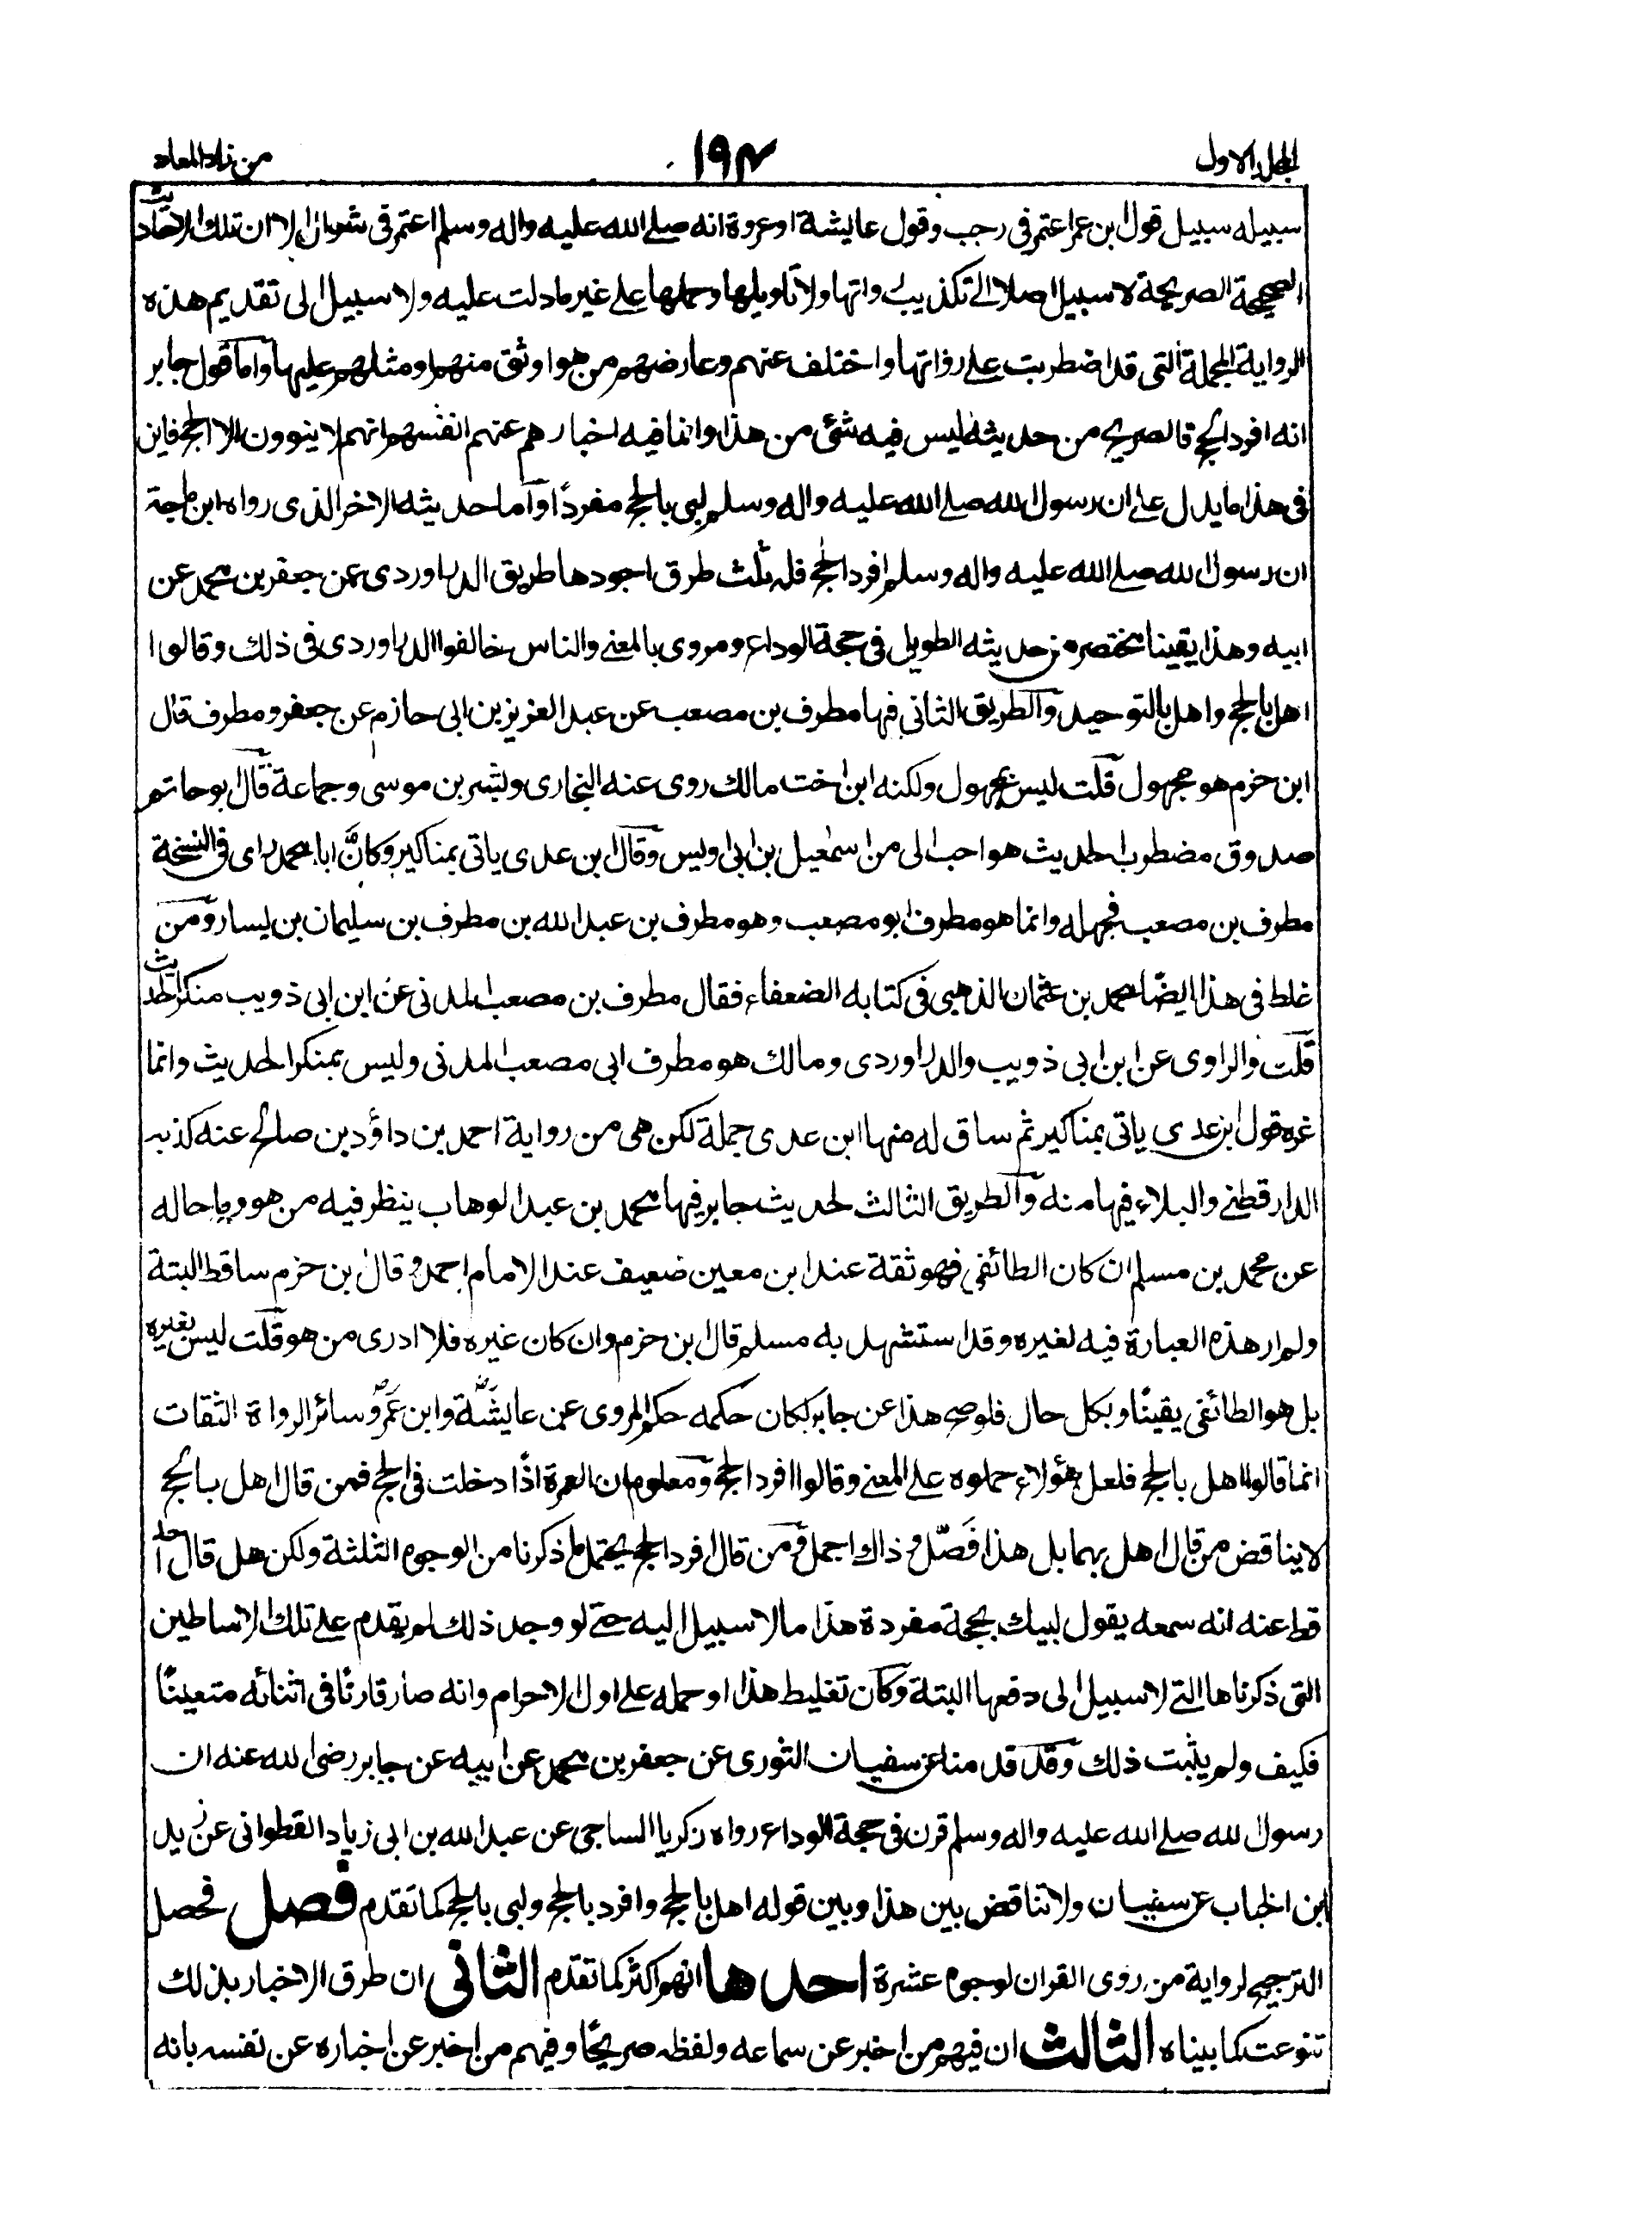 الجلد الاول
١٩٤
من زاد المعاد
سبيله سبيل قول ابن عمر اعتمر فى رجب وقول عايشة او عروة انه صلے الله عليه واله وسلم اعتمر فى شوال الا ان تلك الاحاديث
الصحيحة الصريحة لا سبيل اصلا الے تكذيب رواتها ولا تاويلها وحملها علے غير ما دلت عليه ولا سبيل الى تقديم هذه
الرواية المجملة التى قد اضطربت علے رواتها واختلف عنهم وعارضهم من هو اوثق منهم او مثلهم عليها واما قول جابر
انه افرد الحج فالصريح من حديثه ليس فيه شئ من هذا وانما فيه اخبارهم عنهم انفسهم انهم لا ينوون الا الحج فاين
فى هذا ما يدل علے ان رسول الله صلے الله عليه واله وسلم لبى بالحج مفردًا واما حديثه الاخر الذى رواه ابن ماجة
ان رسول الله صلے الله عليه واله وسلم افرد الحج فله ثلث طرق اجودها طريق الدراوردى عن جعفر بن محمد عن
ابيه وهذا يقينا مختصر من حديثه الطويل فى حجة الوداع ومروى بالمعنے والناس خالفوا الدراوردى فى ذلك وقالوا
اهل بالحج واهل بالتوحيد والطريق الثانى فيها مطرف بن مصعب عن عبد العزيز بن ابى حازم عن جعفر ومطرف قال
ابن حزم هو مجهول قلت ليس بمجهول ولكنه ابن اخت مالك روى عنه البخارى وبشر بن موسى وجماعة قال ابو حاتم
صدوق مضطرب الحديث هو احب الى من اسمعيل بن ابى اويس وقال ابن عدى ياتى بمناكير وكان ابا محمد راى فى النسخة
مطرف بن مصعب فجهله وانما هو مطرف ابو مصعب وهو مطرف بن عبد الله بن مطرف بن سليمان بن يسار ومن
غلط فى هذا ايضًا محمد بن عثمان الذهبى فى كتابه الضعفاء فقال مطرف بن مصعب المدنى عن ابن ابى ذويب منكر الحديث
قلت والراوى عن ابن ابى ذويب والدراوردى ومالك هو مطرف ابى مصعب المدنى وليس بمنكر الحديث وانما
غره قول ابن عدى ياتى بمناكير ثم ساق له منها ابن عدى جملة لكن هى من رواية احمد بن داؤد بن صالح عنه كذبه
الدار قطنے والبلاء فيها منه والطريق الثالث لحديث جابر فيها محمد بن عبد الوهاب ينظر فيه من هو وما حاله
عن محمد بن مسلم ان كان الطائفى فهو ثقة عند ابن معين ضعيف عند الامام احمد وقال ابن حزم ساقط البتة
ولم ار هذه العبارة فيه لغيره وقد استشهد به مسلم قال ابن حزم وان كان غيره فلا ادرى من هو قلت ليس بغيره
بل هو الطائفى يقينًا وبكل حال فلو صح هذا عن جابر لكان حكمه حكم المروى عن عايشة وابن عمر وسائر الرواة الثقات
انما قالوا اهل بالحج فلعل هؤلاء حملوه علے المعنے وقالوا افرد الحج ومعلوم ان العمرة اذًا دخلت فى الحج فمن قال اهل بالحج
لا يناقض من قال اهل بهما بل هذا فَصّل وذاك اجمل ومن قال افرد الحج يحتمل ما ذكرنا من الوجوه الثلثة ولكن هل قال احد
قط عنه انه سمعه يقول لبيك بحجة مفردة هذا ما لا سبيل اليه حتے لو وجد ذلك لم يقدم علے تلك الاساطين
التى ذكرناها التے لا سبيل الى دفعها البتة وكان تغليط هذا او حمله علے اول الاحرام وانه صار قارنًا فى اثنائه متعينًا
فكيف ولم يثبت ذلك وقد قدمنا عن سفيان الثورى عن جعفر بن محمد عن ابيه عن جابر رضى الله عنه ان
رسول الله صلے الله عليه واله وسلم قرن فى حجة الوداع رواه زكريا الساجى عن عبد الله بن ابى زياد القطوانى عن زيد
ابن الحباب عن سفيان ولا تناقض بين هذا وبين قوله اهل بالحج وافرد بالحج ولبى بالحج كما تقدم فصل فحصل
الترجيح لرواية من روى القران لوجوه عشرة احدها انهم اكثر كما تقدم الثانى ان طرق الاخبار بذلك
تنوعت كما بيناه الثالث ان فيهم من اخبر عن سماعه ولفظه صريحًا وفيهم من اخبر عن اخباره عن نفسه بانه